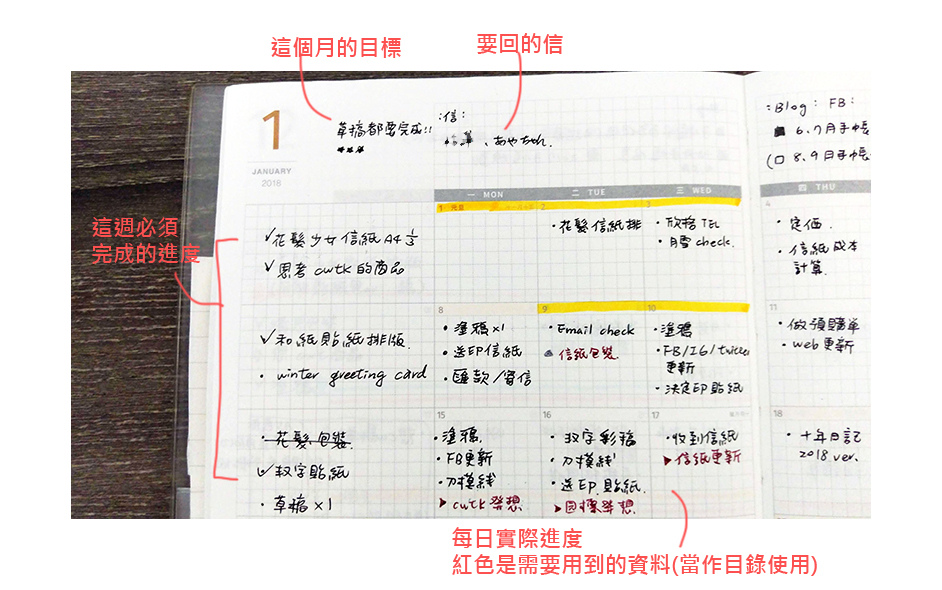 這個月的目標
要回的信
這週必須
完成的進度
1
JANUARY
2018
草稿都要完成!!
:信:
、あやちゃん.
:Blog: FB:
6、7月手帳
8、9月手帳
一 MON
二 TUE
三 WED
四 THU
✓花髮少女信紙A4 1/3
✓思考 cwtk 的商品
1 元旦
2
・花髮信紙排
3
・欣裕 TEL
・月雪 check.
4
・定価.
・信紙成本
計算.
✓和紙貼紙排版.
・winter greeting card
8
・塗鴉×1
・送印信紙
・匯款/寄信
9
・Email check
信紙包裝.
10
・塗鴉
・FB/IG/twitter
更新
・決定印貼紙
11
・做預購單
・web更新
・花髮包裝
✓数字貼紙
・草稿×1
15
・塗鴉.
・FB更新
・刀模線
▶cwtk 發想
16
・数字彩稿
・刀模線
・送印貼紙.
▶圖標發想.
17
・收到信紙
▶信紙更新
18
・十年日記
2018 ver.
每日實際進度
紅色是需要用到的資料(當作目錄使用)